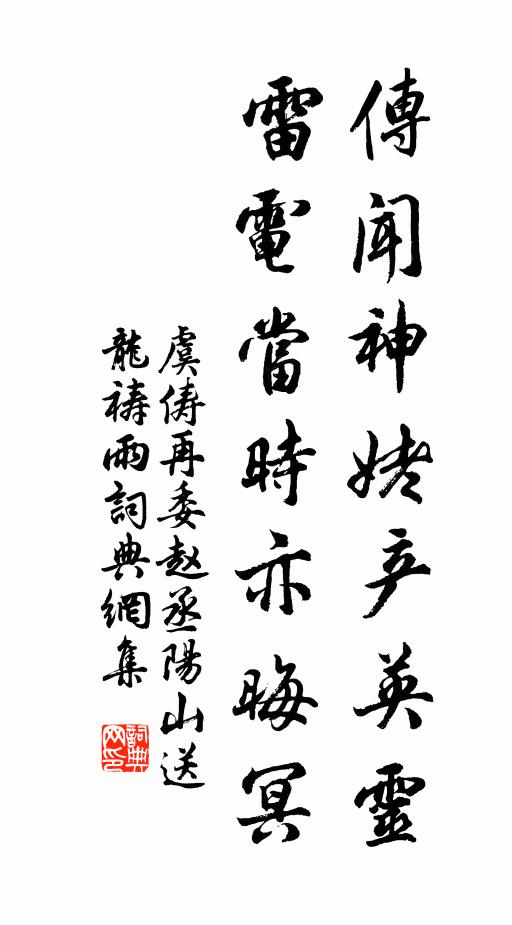 傳聞神姥产英靈
雷電當時亦晦冥
虞俦再委赵丞陽山送
龍祷雨詞典網集
詞典
网印